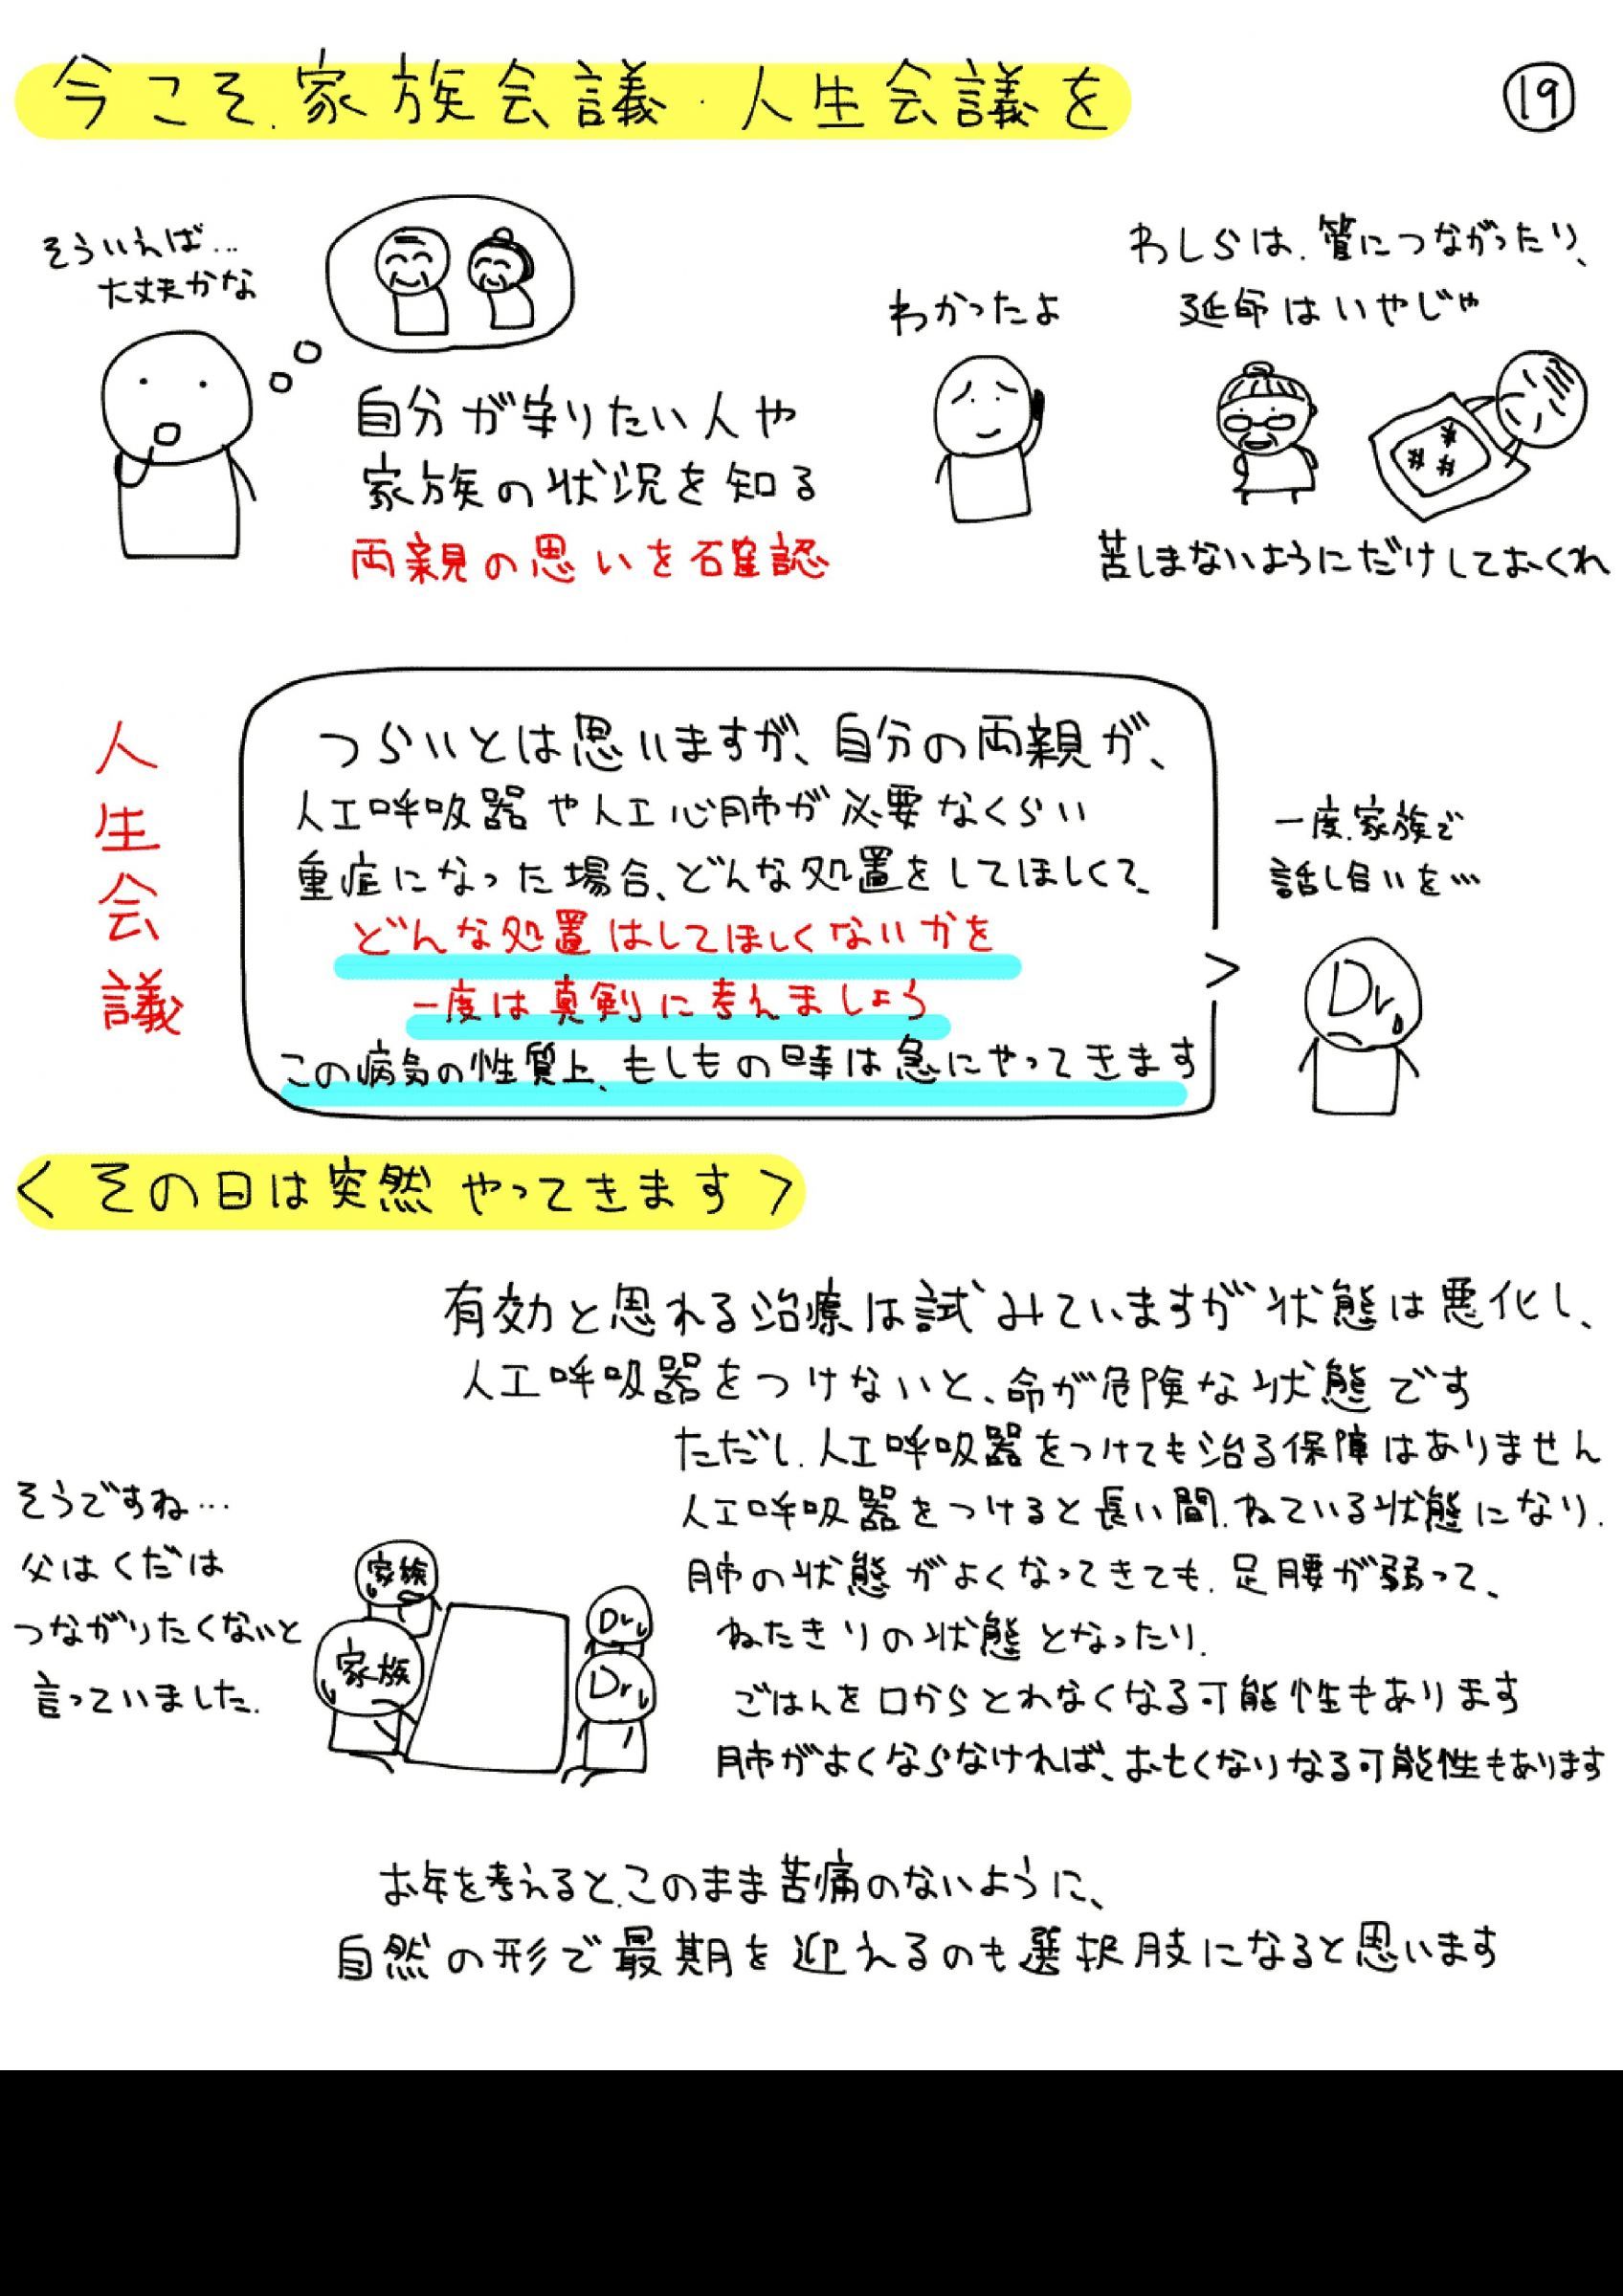 今こそ、家族会議・人生会議を
⑲
そういえば…
大丈夫かな
自分が守りたい人や
家族の状況を知る
両親の思いを確認
わかったよ
わしらは、管につながったり、
延命はいやじゃ
苦しまないようにだけしておくれ
人生会議
つらいとは思いますが、自分の両親が、
人工呼吸器や人工心肺が必要なくらい
重症になった場合、どんな処置をしてほしくて、
どんな処置はしてほしくないかを
一度は真剣に考えましょう
この病気の性質上、もしもの時は急にやってきます
一度、家族で
話し合いを…
Dr
<その日は突然やってきます>
有効と思れる治療は試みていますが状態は悪化し、
人工呼吸器をつけないと、命が危険な状態です
ただし、人工呼吸器をつけても治る保障はありません
人工呼吸器をつけると長い間、ねている状態になり、
肺の状態がよくなってきても、足腰が弱って、
ねたきりの状態となったり、
ごはんを口からとれなくなる可能性もあります
肺がよくならなければ、お亡くなりなる可能性もあります
そうですね…
父はくだは
つながりたくないと
言っていました。
家族
家族
Dr
Dr
お年を考えると、このまま苦痛のないように、
自然の形で最期を迎えるのも選択肢になると思います